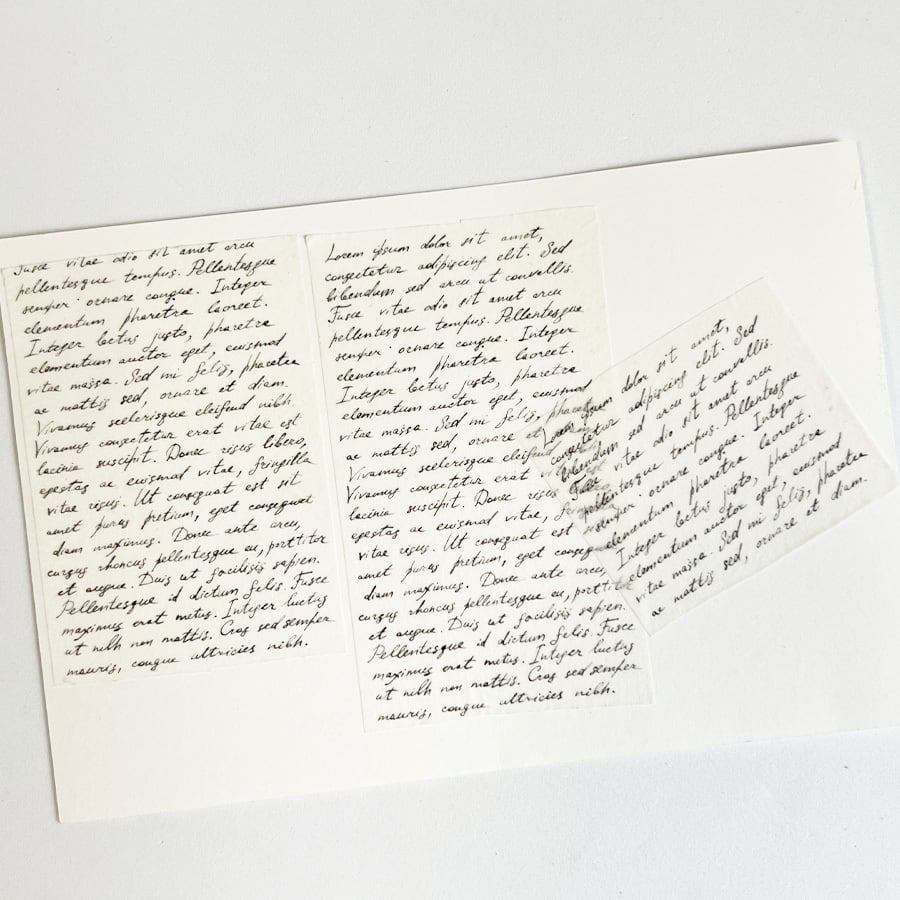 Fusce vitae odio sit amet arcu
pellentesque tempus. Pellentesque
semper ornare congue. Integer
elementum pharetra laoreet.
Integer lectus justo, pharetra
elementum auctor eget, euismod
vitae massa. Sed mi felis, pharetra
ac mattis sed, ornare et diam.
Vivamus scelerisque eleifend nibh
Vivamus consectetur erat vitae est
lacinia suscipit. Donec risus libero,
egestas ac euismod vitae, fringilla
vitae risus. Ut consequat est sit
amet purus pretium, eget consequat
diam maximus. Donec ante arcu,
cursus rhoncus pellentesque eu, porttitor
et augue. Duis ut facilisis sapien.
Pellentesque id dictum felis. Fusce
maximus erat metus. Integer luctus
ut nibh non mattis. Cras sed semper
mauris, congue ultricies nibh.
Lorem ipsum dolor sit amet,
consectetur adipiscing elit. Sed
bibendum sed arcu ut convallis.
Fusce vitae odio sit amet arcu
pellentesque tempus. Pellentesque
semper ornare congue. Integer
elementum pharetra laoreet.
Integer lectus justo, pharetra
elementum auctor eget, euismod
vitae massa. Sed mi felis, pharetra
ac mattis sed, ornare et
Vivamus scelerisque eleifend
Vivamus consectetur erat
lacinia suscipit. Donec risus
egestas ac euismod vitae,
vitae risus. Ut consequat est
amet purus pretium, eget
diam maximus. Donec ante arcu,
cursus rhoncus pellentesque eu,
et augue. Duis ut facilisis sapien.
Pellentesque id dictum felis. Fusce
maximus erat metus. Integer luctus
ut nibh non mattis. Cras sed semper
mauris, congue ultricies nibh.
Lorem ipsum dolor sit amet,
consectetur adipiscing elit. Sed
bibendum sed arcu ut convallis.
Fusce vitae odio sit amet arcu
pellentesque tempus. Pellentesque
semper ornare congue. Integer
elementum pharetra laoreet.
Integer lectus justo, pharetra
elementum auctor eget, euismod
vitae massa. Sed mi felis, pharetra
ac mattis sed, ornare et diam.